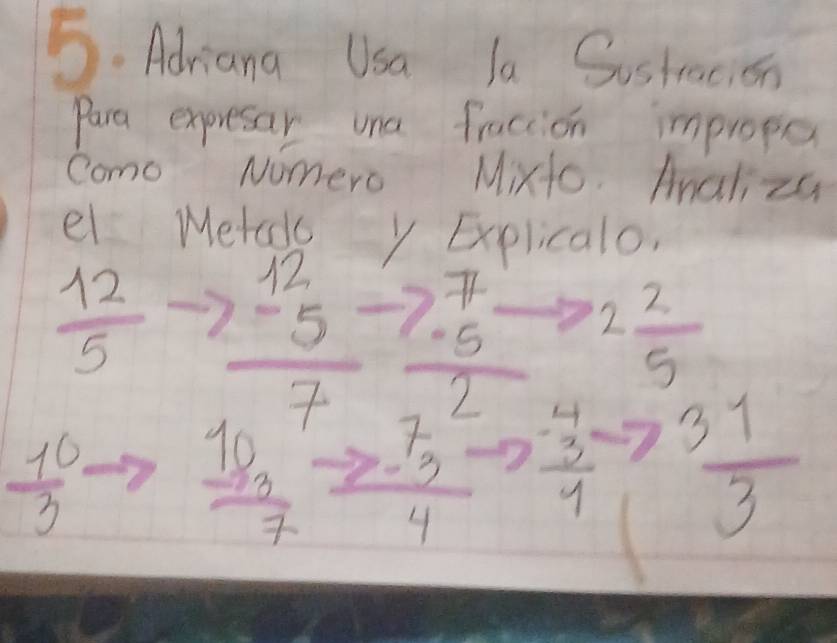 5. Adriana Usa la Sustracion
Para expresar una fracción impropia
Como Número Mixto. Analiza
el Metodo y Explicalo.
12/5 → 12 - 5 = 7 → 7 - 5 = 2 → 2 2/5
10/3 → 10 - 3 = 7 → 7 - 3 = 4 → 4 - 3 = 1 → 3 1/3